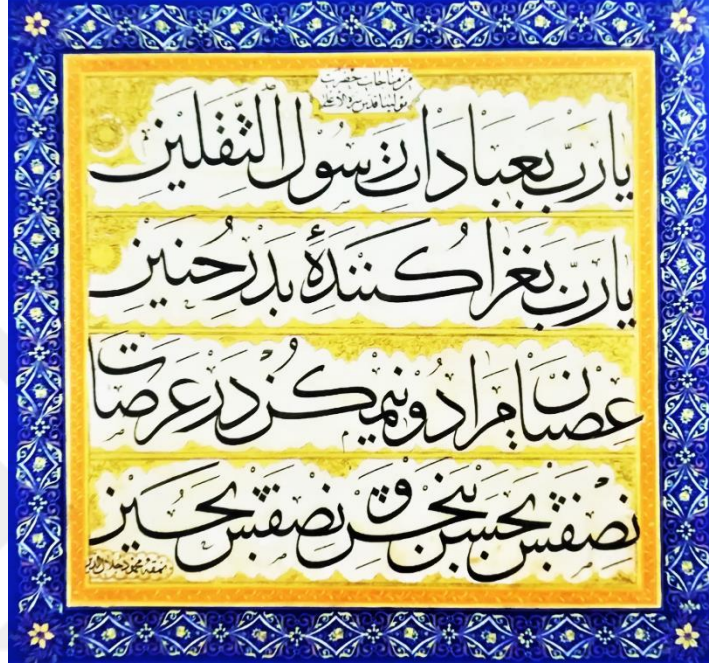 من مناجات حضرت
مولينا قدس سره الاعلى
يا رَبّ بعبادات رسول الثقلين
يا رَبّ بغزا كنندۀ بدر حنين
عصيان مرا دو نيمه كن در عرصات
نصفش بحسن ببخش و نصفش بحسين
نمقه محمود جلال الدين